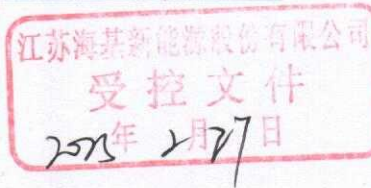 江苏海基新能源股份有限公司
受控文件
2023年2月27日